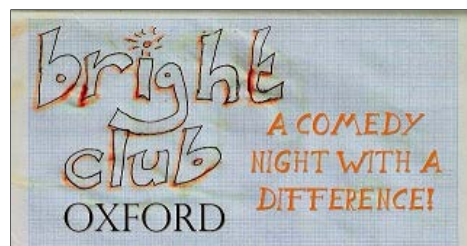 bright
club
OXFORD
A COMEDY
NIGHT WITH A
DIFFERENCE!